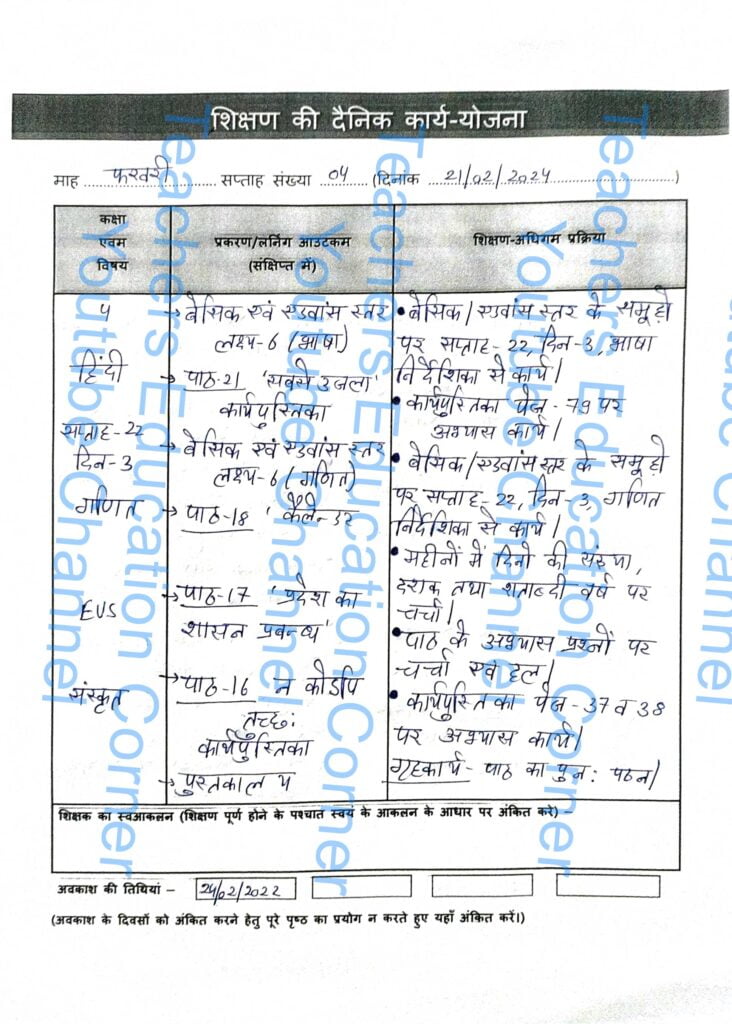 शिक्षण की दैनिक कार्य-योजना
माह फरवरी सप्ताह संख्या 04 (दिनांक 21/02/2024)
कक्षा एवम विषय
प्रकरण/लर्निंग आउटकम (संक्षिप्त में)
शिक्षण-अधिगम प्रक्रिया
5
हिंदी
सप्ताह-22
दिन-3
गणित
EVS
संस्कृत
→ बेसिक एवं एडवांस स्तर
लक्ष्य-6 (भाषा)
→ पाठ-21 'सबसे उजला'
कार्यपुस्तिका
→ बेसिक एवं एडवांस स्तर
लक्ष्य-6 (गणित)
→ पाठ-18 'कैलेन्डर
→ पाठ-17 'प्रदेश का
शासन प्रबन्ध'
→ पाठ-16 न कोऽपि
तुच्छः
कार्यपुस्तिका
→ पुस्तकालय
• बेसिक/एडवांस स्तर के समूहो
पर सप्ताह-22, दिन-3, भाषा
निर्देशिका से कार्य।
• कार्यपुस्तिका पेज-79 पर
अभ्यास कार्य।
• बेसिक/एडवांस स्तर के समूहो
पर सप्ताह-22, दिन-3, गणित
निर्देशिका से कार्य।
• महीनों में दिनो की संख्या,
दशक तथा शताब्दी वर्ष पर
चर्चा।
• पाठ के अभ्यास प्रश्नों पर
चर्चा एवं हल।
• कार्यपुस्तिका पेज-37 व 38
पर अभ्यास कार्य।
गृहकार्य- पाठ का पुन: पठन।
शिक्षक का स्वआकलन (शिक्षण पूर्ण होने के पश्चात स्वयं के आकलन के आधार पर अंकित करे) –
अवकाश की तिथियां – 24/02/2022
(अवकाश के दिवसों को अंकित करने हेतु पूरे पृष्ठ का प्रयोग न करते हुए यहाँ अंकित करें।)
Teachers Education Corner
Youtube Channel
Teachers Education Corner
Youtube Channel
Teachers Education Corner
Youtube Channel